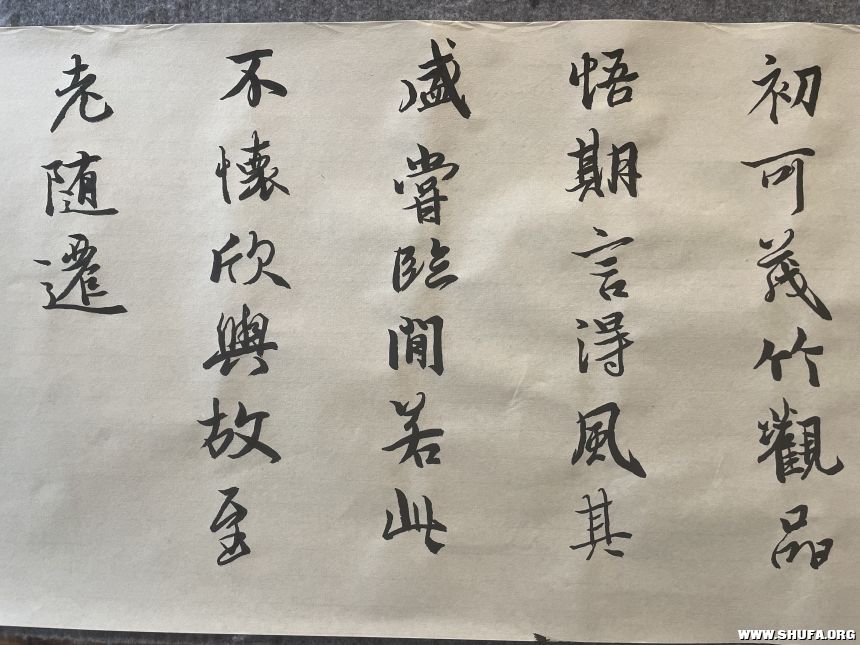 初可茂竹觀品
悟期言得風其
盛嘗臨閒若此
不懷欣興故至
老随遷
WWW.SHUFA.ORG